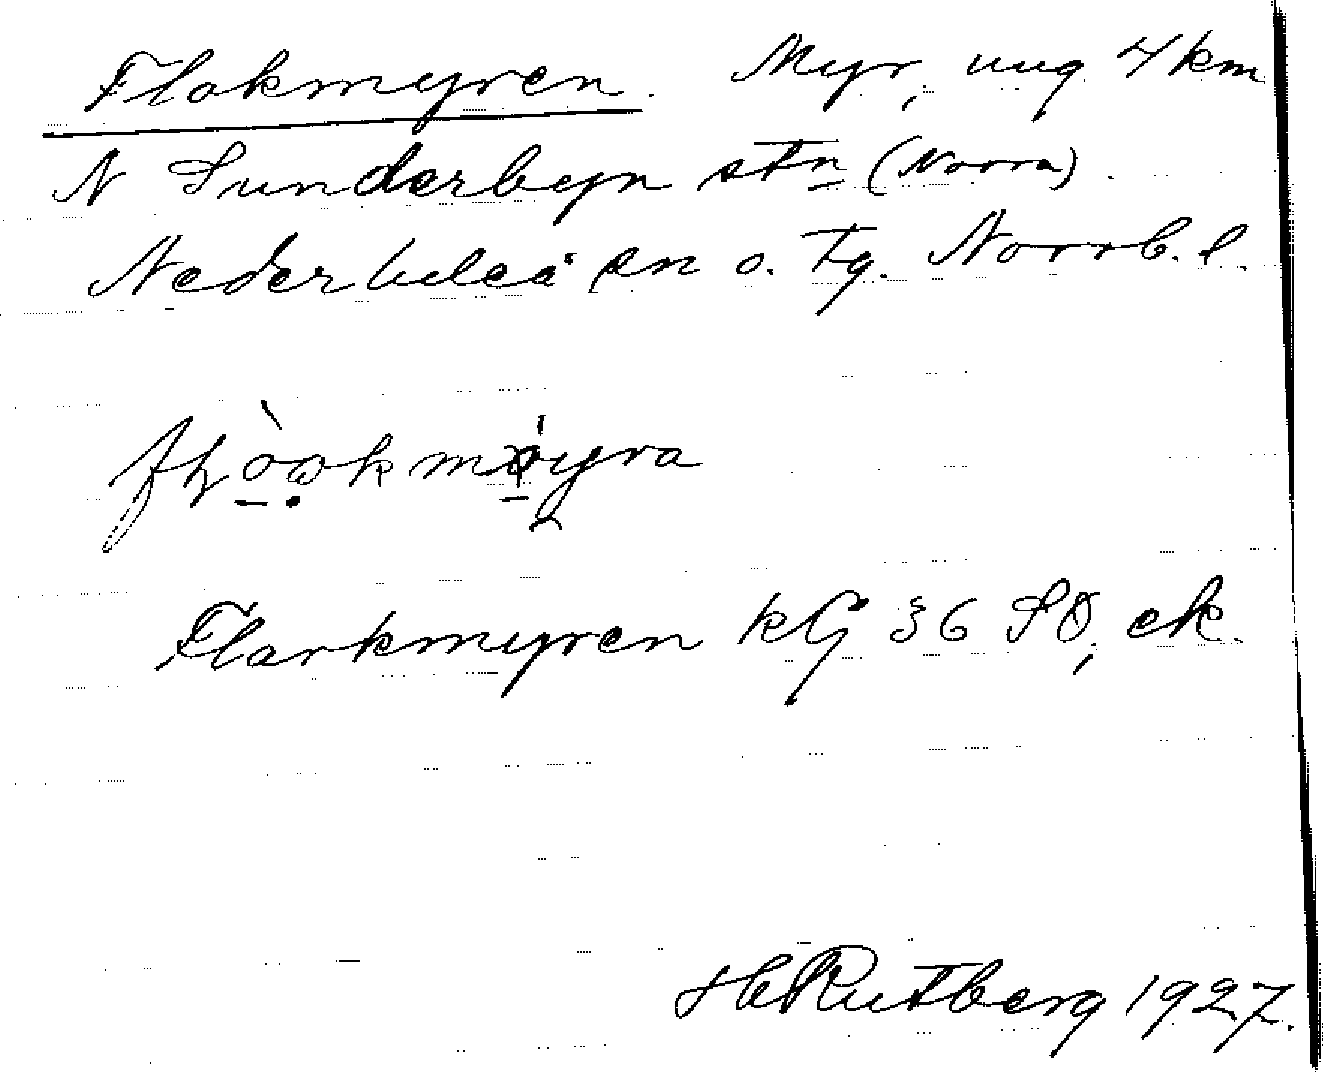 Flakmyren. Myr, ung 4 km
N Sunderbyn stn (Norra)
Nederluleå sn o. tg. Norrb. l.
Flarkmyren kG §6 SO, ek.
H Rutberg 1927.